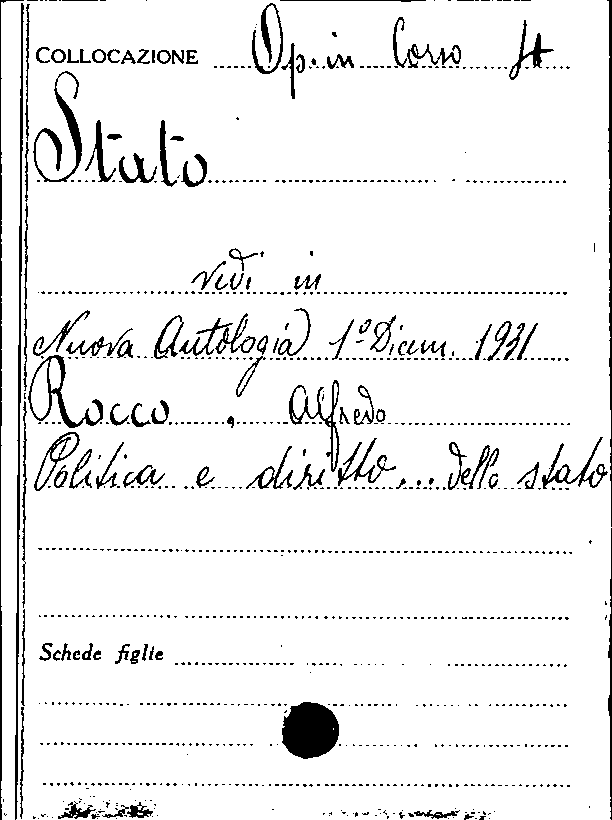 COLLOCAZIONE Op. in Corso
Stato
vedi in
Nuova Antologia 1º Dicem. 1931
Rocco, Alfredo
Politica e diritto... dello stato
Schede figlie